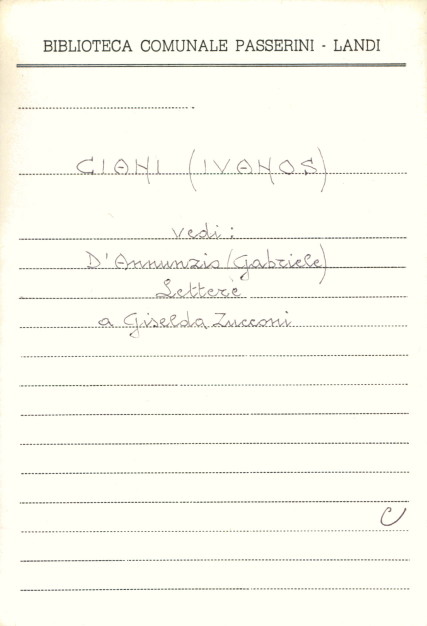 BIBLIOTECA COMUNALE PASSERINI - LANDI
CIANI (IVANOS)
vedi:
D'Annunzio (Gabriele)
Lettere
a Giselda Zucconi
C